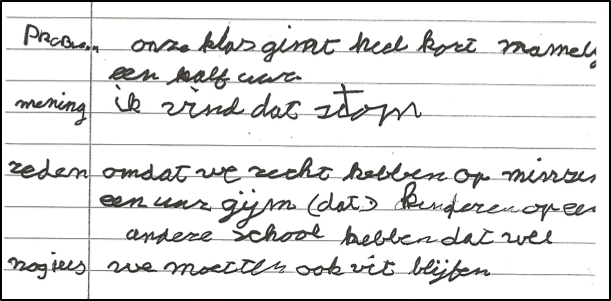 Probleem onze klas gimt heel kort namelij
een half uur
mening ik vind dat stom
reden omdat we recht hebben op minsten
een uur gijm (dat) kinderen op een
andere school hebben dat wel
nog iets we moetten ook vit blijfen